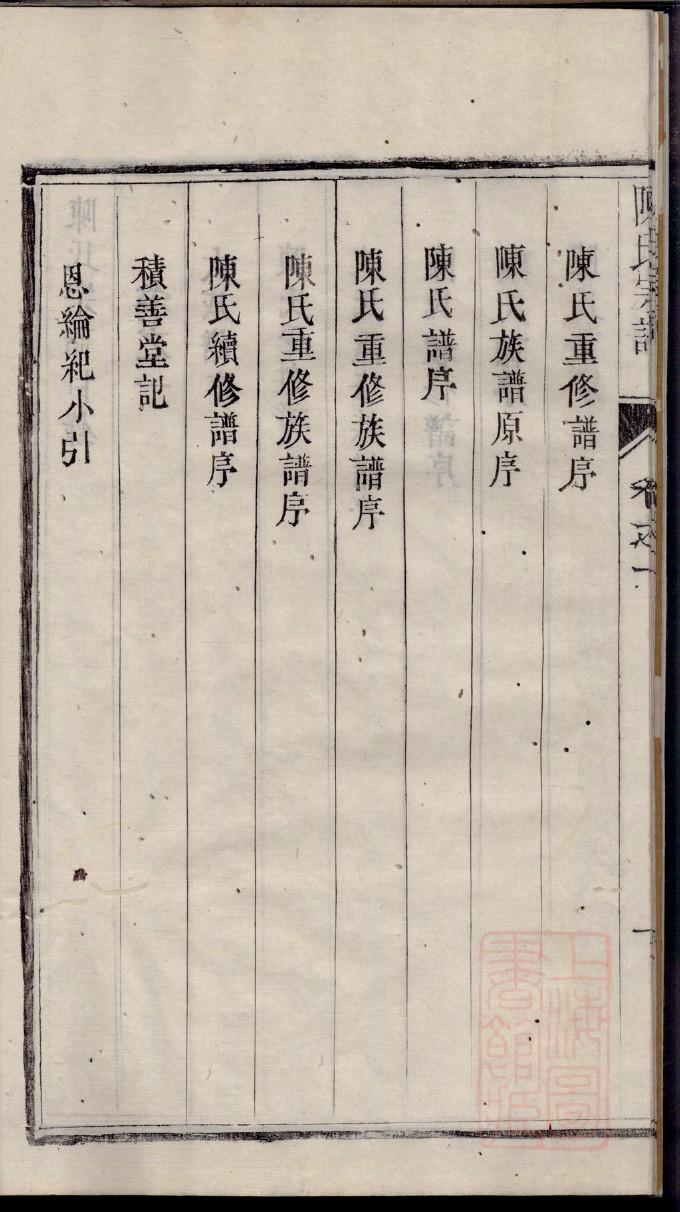 陳氏宗譜
卷之一
陳氏重修譜序
陳氏族譜原序
陳氏譜序
陳氏重修族譜序
陳氏重修族譜序
陳氏續修譜序
積善堂記
恩綸紀小引
上海圖書館藏